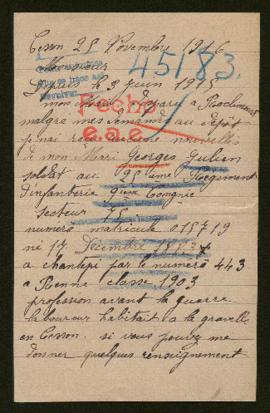 Cesson 25 Novembre 1916
Monsieur
45183.
Depuis le 3 juin 1915
mon Mari disparu a
malgre mes demandes au Depôt
Fecho
e.a.e.
je nai recu aucune nouvelles
de mon Mari Georges Julien
soldat au 95 eme Regement
d'infanterie 9eme Compnie
secteur
numero matricule 015719
né 17 Décembre
a chantepie par le numero 443
a Renne classe 1903
profession avant la guerre
laboureur habitait a la gravelle
en Cesson. si vous pouvez me
donner quelques renseignement